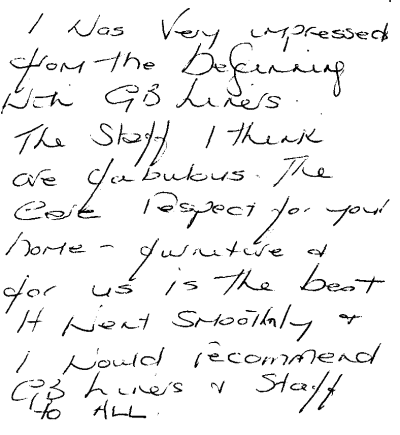 I was very impressed
from the beginning
with GB Liners.
The Staff I think
are fabulous. The
Care respect for your
home - furnitive &
for us is the best
It went smoothly &
I would recommend
GB Liners & Staff
to ALL.